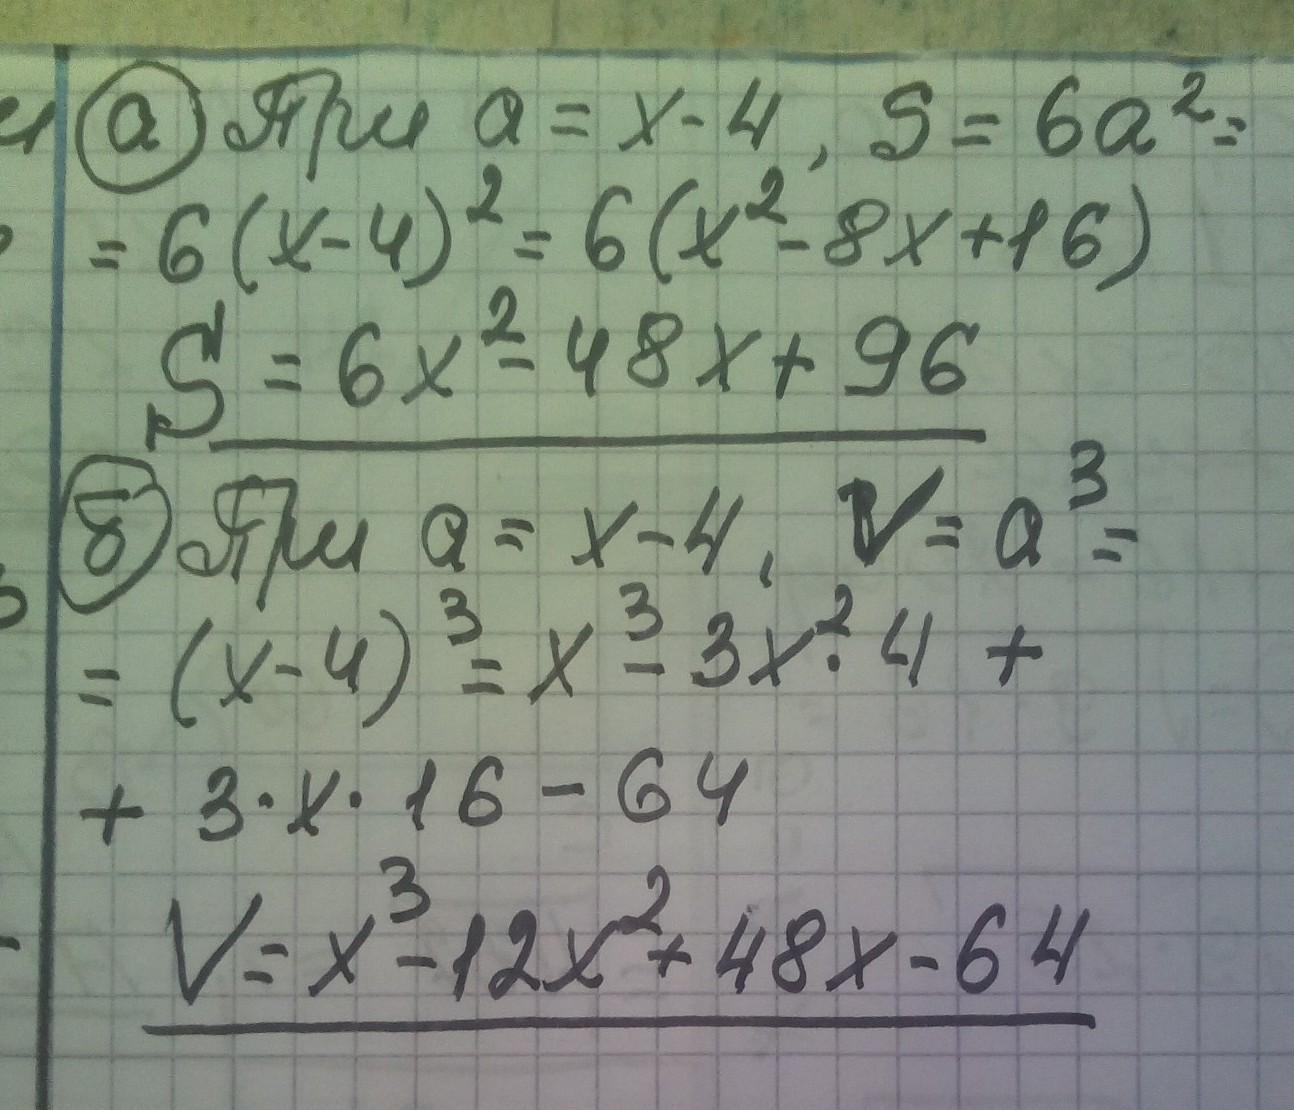 а) При a = x - 4, S = 6a² =
= 6(x - 4)² = 6(x² - 8x + 16)
S = 6x² - 48x + 96
б) При a = x - 4, V = a³ =
= (x - 4)³ = x³ - 3x² · 4 +
+ 3 · x · 16 - 64
V = x³ - 12x² + 48x - 64